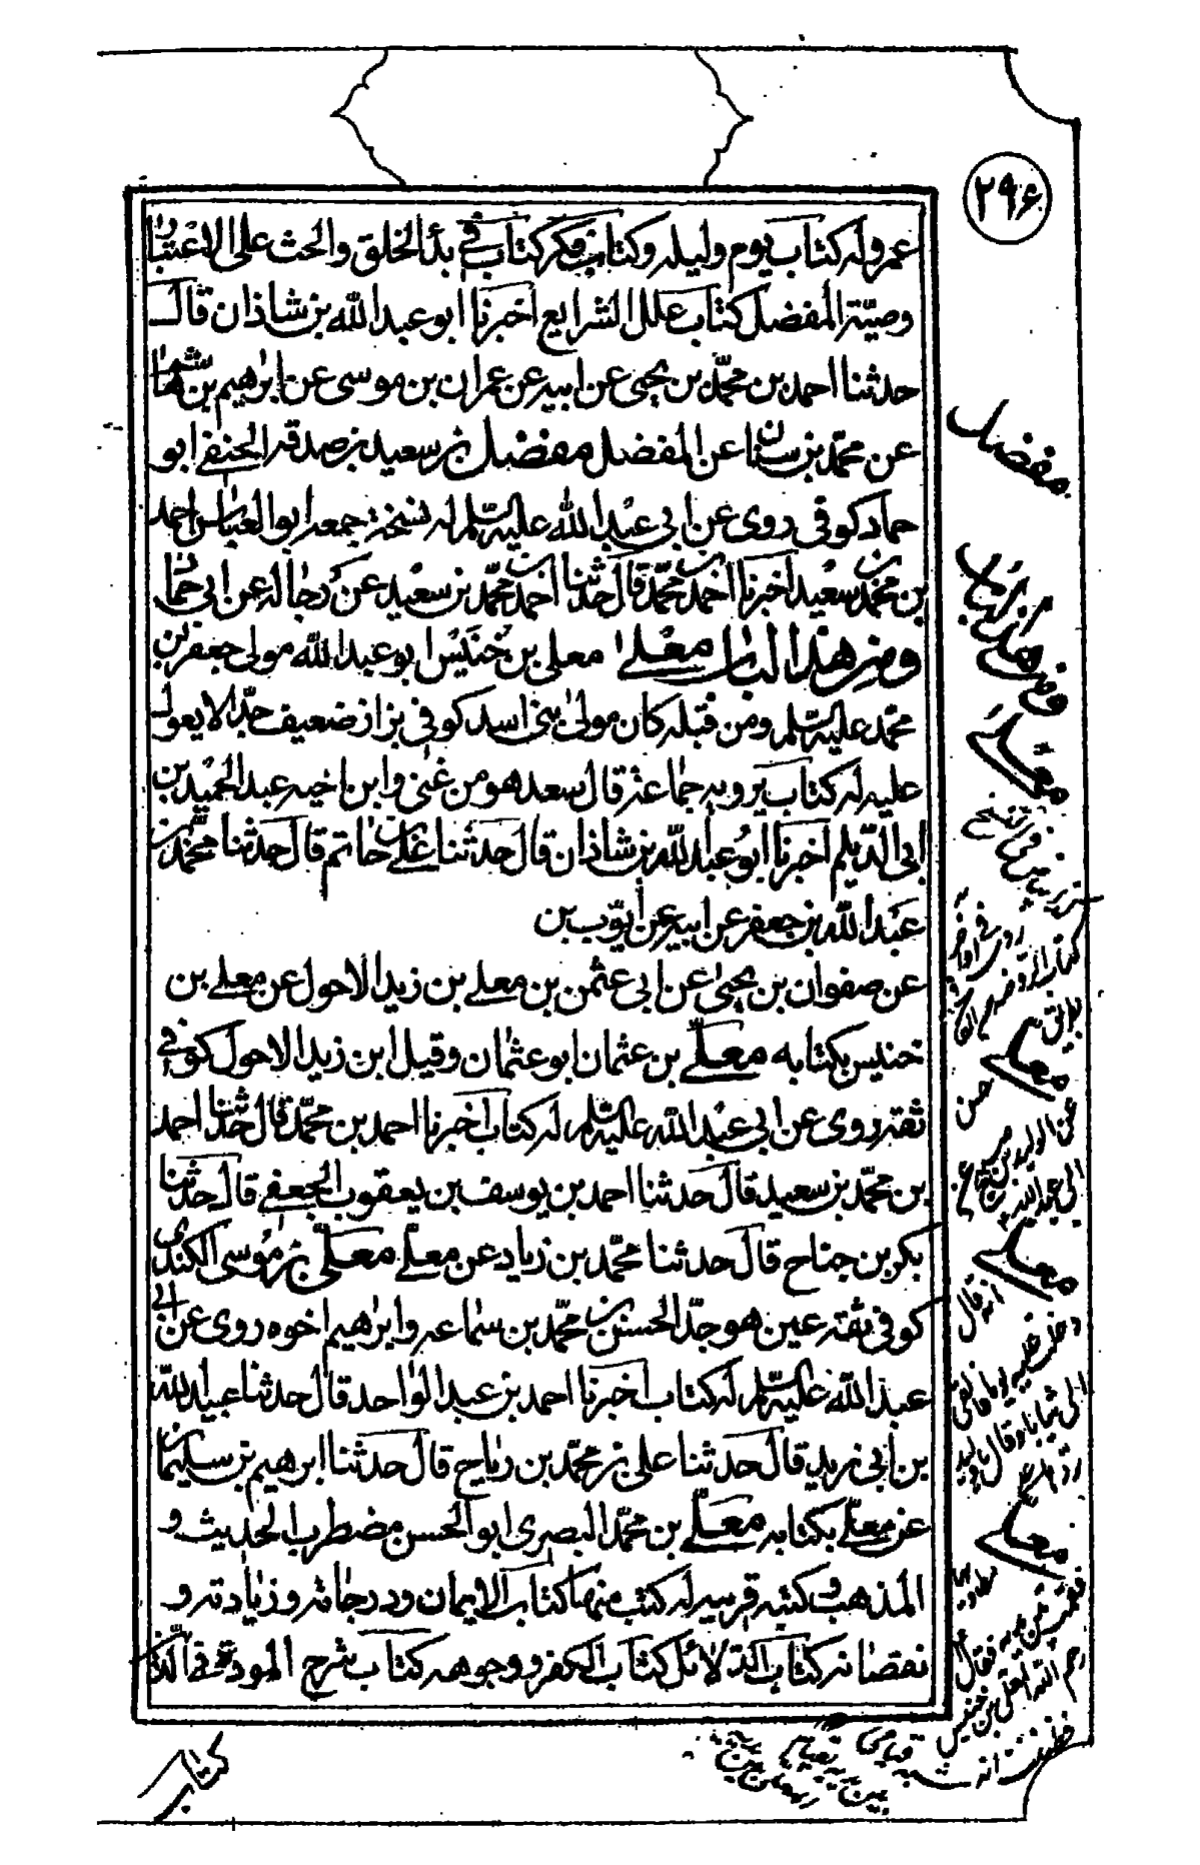 ۲۹۶
عمرو له كتاب يوم وليله وكتاب فكر كتاب في بدأ الخلق والحث على الاعتبار
وصيّة المفضل كتاب علل الشرايع اخبرنا ابو عبد الله بن شاذان قال
حدثنا احمد بن محمّد بن يحيى عن ابيه عن عمران بن موسى عن ابرٰهيم بن هاشم
عن محمّد بن سنان عن المفضل مفضل بن سعيد بن صدقه الحنفي ابو
حماد كوفي روى عن ابي عبد الله عليه السّلم له نسخة جمعه ابو العباس احمد
بن محمد بن سعيد اخبرنا احمد بن محمّد قال حدثنا احمد بن محمّد بن سعيد عن رجاله عن ابي حماد
ومن هذا الباب معلى معلى بن خنيس ابو عبد الله مولى جعفر بن
محمّد عليه السّلم ومن قبله كان مولى بني اسد كوفي بزاز ضعيف جدّا لا يعول
عليه له كتاب يرويه جماعة قال سعد هو من غنى وابن اخيه عبد الحميد بن
ابي الدّيلم اخبرنا ابو عبد الله بن شاذان قال حدثنا علي بن حاتم قال حدثنا محمّد بن
عبد الله بن جعفر عن ابيه عن أيوّب بن
عن صفوان بن يحيىٰ عن ابي عثمن بن معلى بن زيد الاحول عن معلى بن
خنيس بكتابه معلّى بن عثمان ابو عثمان وقيل ابن زيد الاحول كوفي
ثقة روى عن ابي عبد الله عليه السّلم له كتاب اخبرنا احمد بن محمّد قال حدثنا احمد
بن محمّد بن سعيد قال حدثنا احمد بن يوسف بن يعقوب الجعفي قال حدثنا
بكر بن جناح قال حدثنا محمّد بن زياد عن معلّى معلّى بن موسى الكندى
كوفي ثقة عين هو جدّ الحسن بن محمّد بن سماعه وابرٰهيم اخوه روى عن ابي
عبد الله عليه السّلم له كتاب اخبرنا احمد بن عبد الواحد قال حدثنا عبيد الله
بن أبي زيد قال حدثنا على بن محمّد بن رباح قال حدثنا ابرهيم بن سليمان
عن معلّى بكتابه معلّى بن محمّد البصرى ابو الحسن مضطرب الحديث و
المذهب وكتبه قريبه له كتب منها كتاب الايمان ودرجاته وزيادته و
نقصانه كتاب الدّلائل كتاب الكفر ووجوهه كتاب شرح المودّة في الدّين
مفضل
ومن هذا الباب
معلّى
معلّى
معلّى
معلّى
كتاب